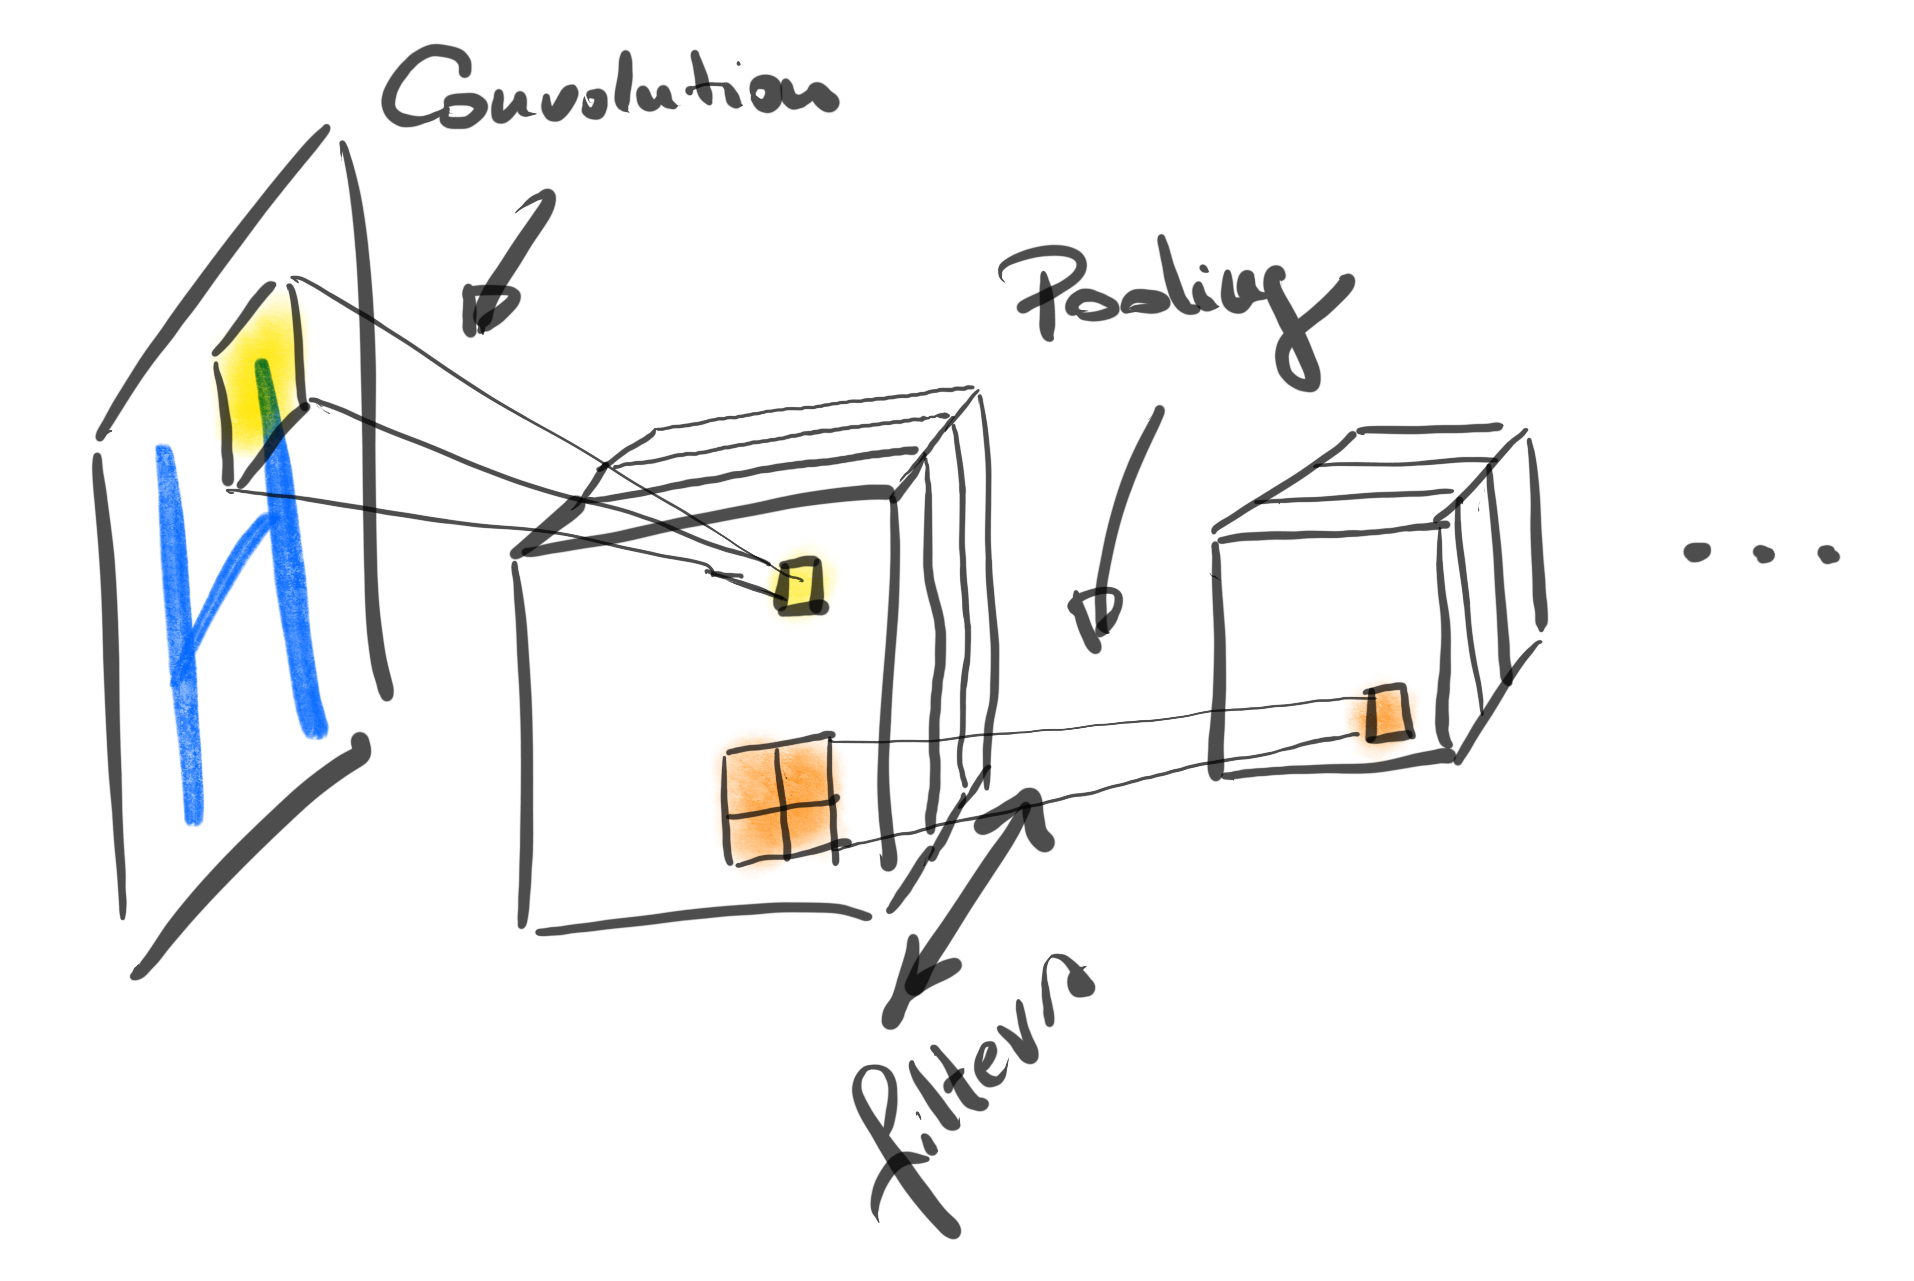 Convolution
Pooling
H
filters
...